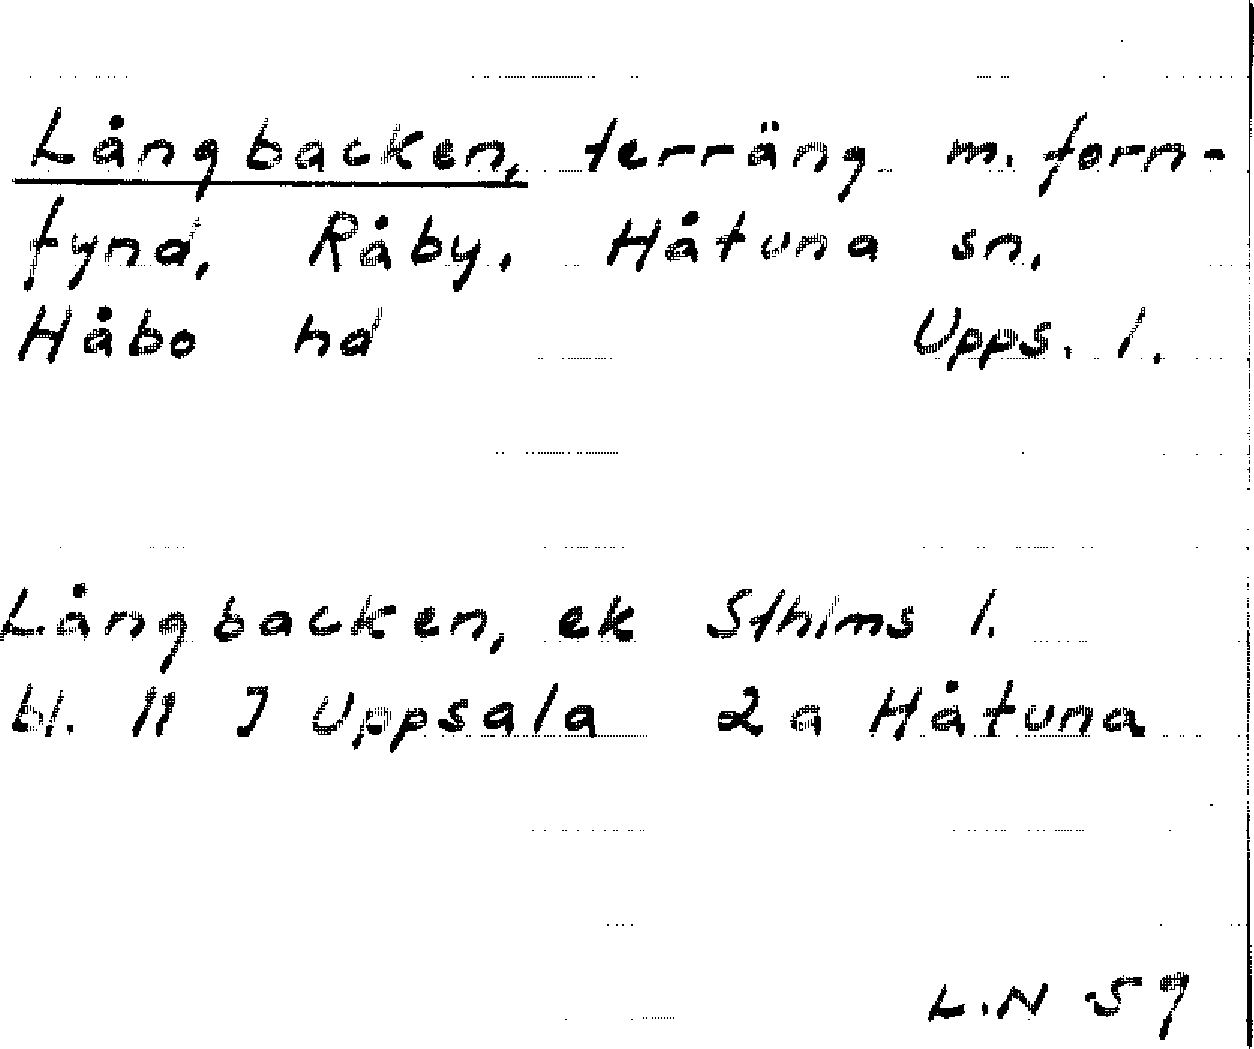 Långbacken, terräng m. forn-
fynd, Råby, Håtuna sn.
Håbo hd Upps. l.
Långbacken, ek Sthlms l.
bl. 11 I Uppsala 2 a Håtuna
L.N 59